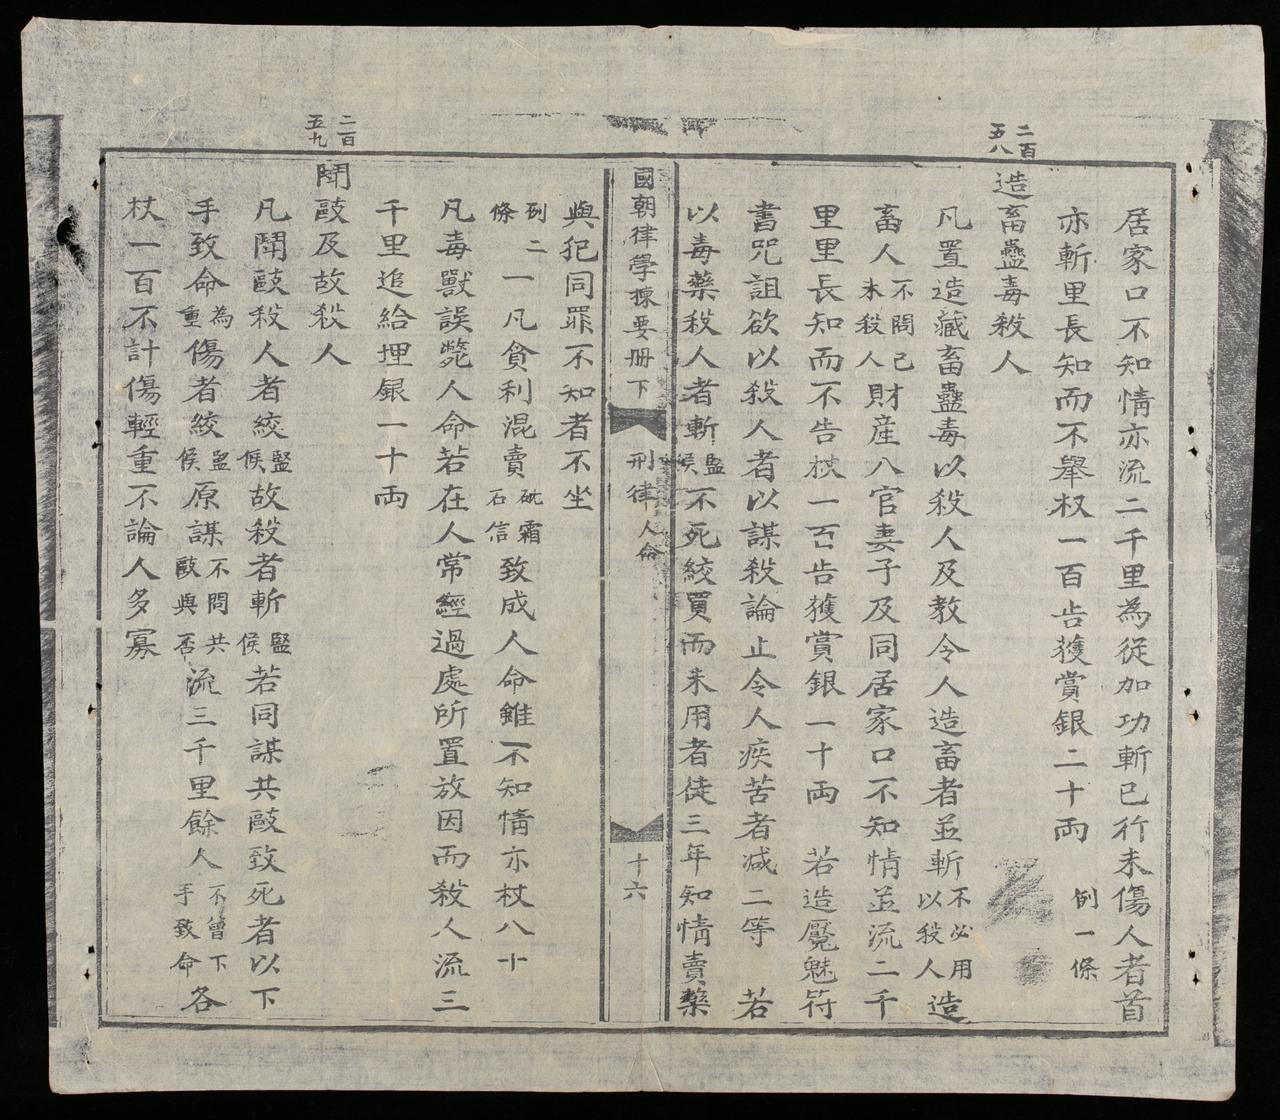 居家口不知情亦流二千里為従加功斬已行未傷人者首
亦斬里長知而不舉杖一百告獲賞銀二十両 例一條
二百五八
造畜蠱毒殺人
凡置造藏畜蠱毒以殺人及教令人造畜者並斬不必用以殺人造
畜人不問已未殺人財産入官妻子及同居家口不知情並流二千
里里長知而不告杖一百告獲賞銀一十両 若造魘魅符
書咒詛欲以殺人者以謀殺論止令人疾苦者減二等 若
以毒藥殺人者斬監候不死絞買而未用者徒三年知情賣藥
國朝律學揀要冊下 刑律人命 十六
與犯同罪不知者不坐
例二條一凡貪利混賣砒霜石信致成人命雖不知情亦杖八十
凡毒獸誤斃人命若在人常經過處所置放因而殺人流三
千里追給埋銀一十両
二百五九
鬪毆及故殺人
凡鬪毆殺人者絞監候故殺者斬監候若同謀共毆致死者以下
手致命為重傷者絞監候原謀不問共毆與否流三千里餘人不曾下手致命各
杖一百不計傷輕重不論人多寡